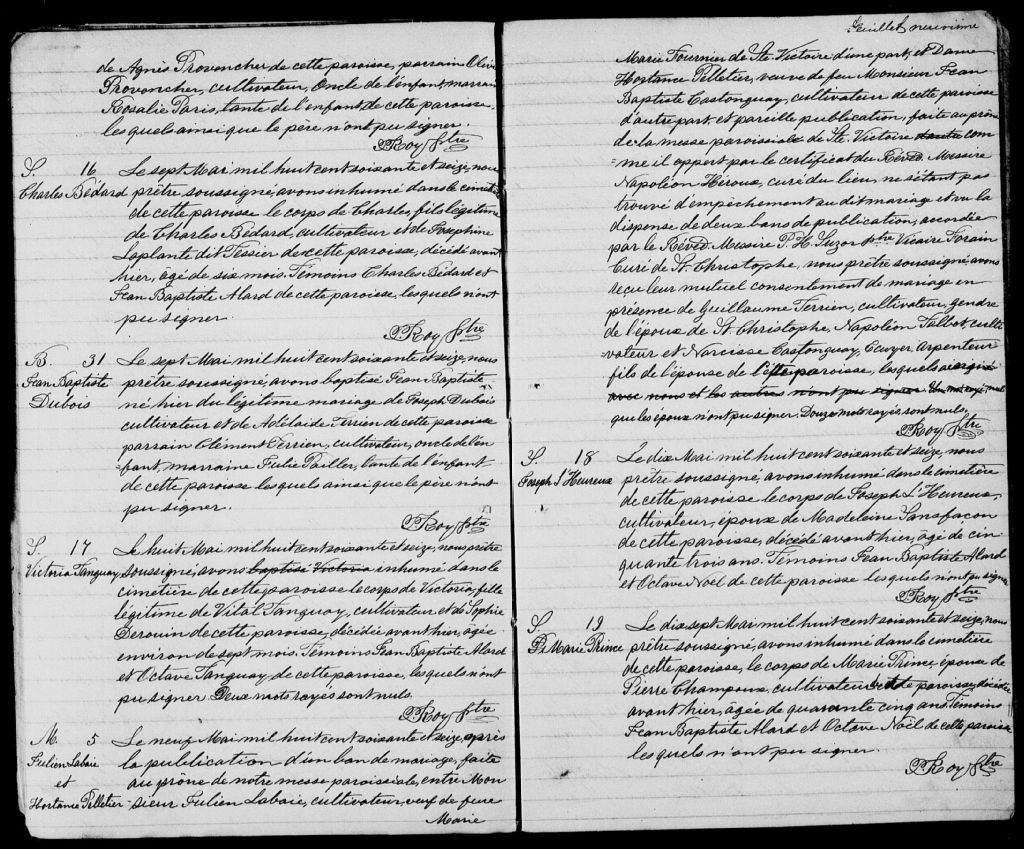 de Agnis Provencher de cette paroisse, parrain Olivi
Provencher, cultivateur, Oncle de l'enfant, marrai
Rosalie Paris, tante de l'enfant, de cette paroisse,
lesquels ainsi que le père n'ont pu signer.
P. Roy Ptre
S. 16
Charles Bédard
Le sept Mai mil huit cent soixante et seize, nou
prêtre soussigné, avons inhumé dans le cimeti
de cette paroisse le corps de Charles, fils légitime
de Charles Bédard, cultivateur et de Josephine
Laplante dit Tessier de cette paroisse, décédé avant
hier, agé de six mois. Témoins Charles Bédard et
Jean Baptiste Alard de cette paroisse, lesquels n'ont
pu signer.
P. Roy Ptre
B. 31
Jean Baptiste
Dubois
Le sept Mai mil huit cent soixante et seize, nous
prêtre soussigné, avons baptisé Jean Baptiste
né hier du légitime mariage de Joseph Dubois
cultivateur et de Adélaide Terrien de cette paroisse
parrain Clément Terrien, cultivateur, oncle de l'en
=fant, marraine Julie Pailler, tante de l'enfant
de cette paroisse lesquels ainsi que le père n'ont
pu signer.
P. Roy Ptre
S. 17
Victoria Tanguay
Le huit Mai mil huit cent soixante et seize, nous prêtre
soussigné, avons baptisé Victoria inhumé dans le
cimetière de cette paroisse le corps de Victoria, fille
légitime de Vital Tanguay, cultivateur et de Sophie
Derouin de cette paroisse, décidée avant hier, agée
environ de sept mois. Témoins Jean Baptiste Alard
et Octave Tanguay de cette paroisse, lesquels n'ont
pu signer Deux mots rayés sont nuls.
P. Roy Ptre
M. 5
Julien Labaie
et
Hortance Pelletier
Le neuf Mai mil huit cent soixante et seize, après
la publication d'un ban de mariage, faite
au prône de notre messe paroissiale, entre Mon
=sieur Julien Labaie, cultivateur, veuf de feue
Marie
Feuillet neuvième
Marie Fournier de Ste Victoire d'une part, et Dame
Hortance Pelletier, veuve de feu Monsieur Jean
Baptiste Castonguay, cultivateur de cette paroisse
d'autre part, et pareille publication, faite au prône
de la messe paroissiale de Ste. Victoire d'autre com
=me il appert par le certificat du Révéd. Messire
Napoléon Héroux, curé du lieu, ne s'étant pas
trouvé d'empêchement au dit mariage et vu la
dispense de deux bans de publication, accordée
par le Révéd. Messire P. H. Suzor Ptre Vicaire Forain
Curé de St. Christophe, nous prêtre soussigné, avons
reçu leur mutuel consentement de mariage en
présence de Guillaume Terrien, cultivateur, gendre
de l'époux de St. Christophe, Napoléon Talbot, culti
=vateur et Narcisse Castonguay, Ecuyer, Arpenteur
fils de l'épouse de paroisse, lesquels
avec nous et les autres n'ont pu signer
que les époux n'ont pu signer. Douze mots rayés sont nuls.
P. Roy Ptre
S. 18
Joseph L'Heureux
Le dix Mai mil huit cent soixante et seize, nous
prêtre soussigné, avons inhumé dans le cimetière
de cette paroisse le corps de Joseph L'Heureux,
cultivateur, époux de Madeleine Sansfaçon
de cette paroisse, décédé avant hier, agé de cin
quante trois ans. Témoins Jean Baptiste Alard
et Octave Noël de cette paroisse lesquels n'ont pu signe
P. Roy Ptre
S. 19
Marie Prince
Le dix sept Mai mil huit cent soixante et seize, nou
prêtre soussigné, avons inhumé dans le cimetière
de cette paroisse, le corps de Marie Prince, épouse de
Pierre Champoux, cultivateur de cette paroisse, décédée
avant hier, agée de quarante cinq ans. Témoins
Jean Baptiste Alard et Octave Noël de cette paroisse
lesquels n'ont pu signer.
P. Roy Ptre